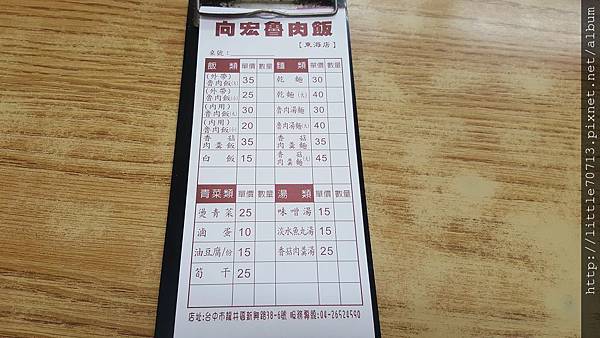 向宏魯肉飯
【東海店】
桌號：
飯 類 單價 數量 麵 類 單價 數量
(外帶)魯肉飯(大) 35 乾 麵 30
(外帶)魯肉飯(小) 25 乾麵(大) 40
(內用)魯肉飯(大) 30 魯肉湯麵 30
(內用)魯肉飯(小) 20 魯肉湯麵(大) 40
香菇肉羹飯 35 香菇肉羹麵 35
白 飯 15 香菇肉羹麵(大) 45
青菜類 單價 數量 湯 類 單價 數量
燙青菜 25 味噌湯 15
滷 蛋 10 淡水魚丸湯 15
油豆腐/份 15 香菇肉羹湯 25
筍 干 25
店址:台中市龍井區新興路38-6號 服務專線:04-26524590
http://little70713.pixnet.net/album